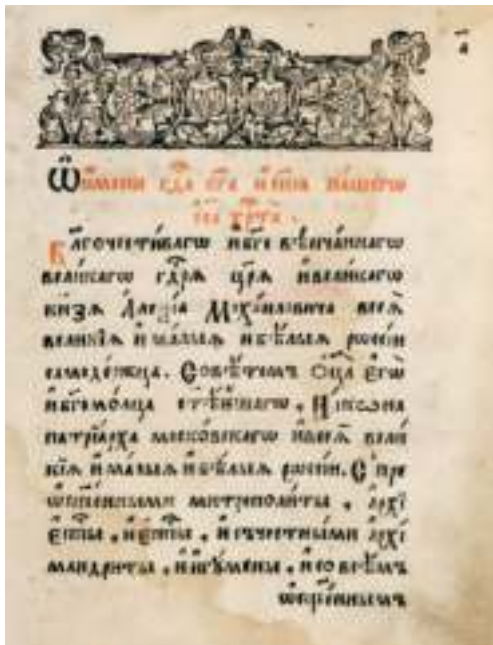 Ѡ имени гда бга и спса нашегѡ
іса хрта.
Благочестиваго и бгѡ вѣнчаннагѡ
великагѡ гдря цря и великагѡ
кнзя Алеѯіа Михаиловича всея
великїя и малыя и бѣлыя рѡсїи
самодержца. Совѣтомъ ѻца егѡ
и бгомолца стѣишагѡ, Никѡна
патрїарха московскагѡ и всея вели
кїя и малыя и бѣлыя рѡсїи. С пре
ѡсщенными митрополиты, архї
епкпы, и епкпы, и съ честными архї
мандриты, и игумены, и со всѣмъ
ѡсщеннымъ